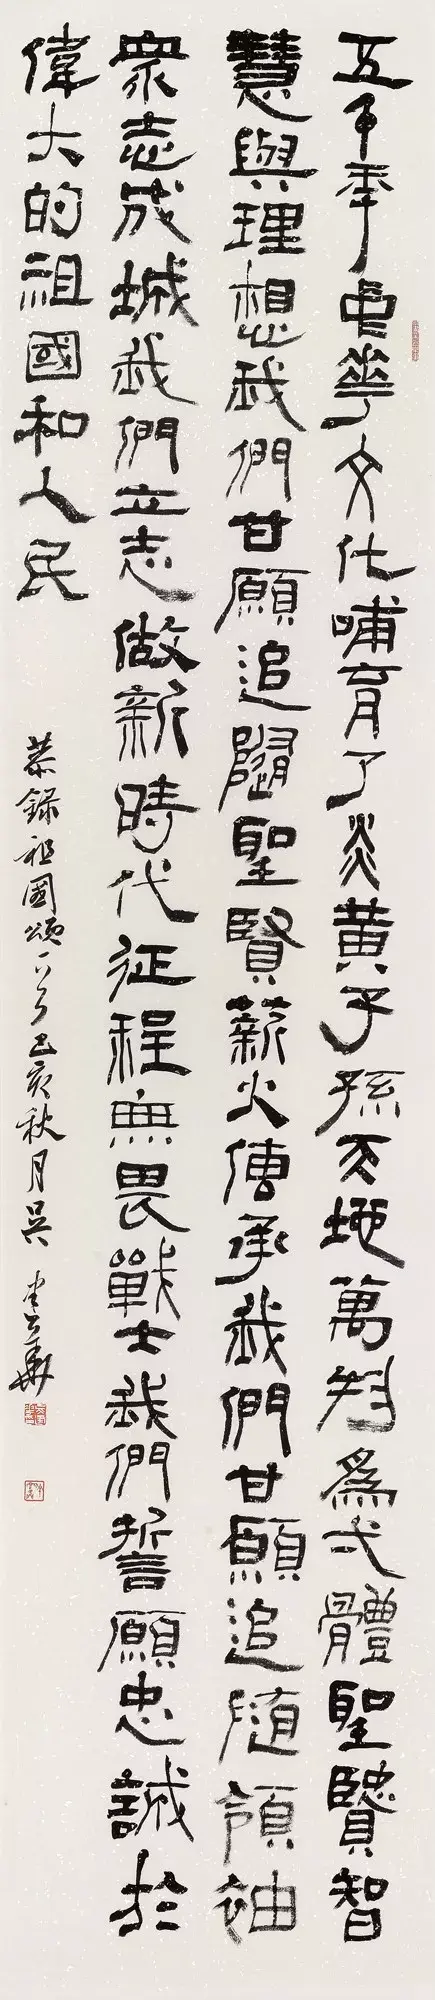 五千年中華文化哺育了炎黃子孫天地萬物為弌體聖賢智
慧與理想我們甘願追隨聖賢薪火傳承我們甘願追隨領袖
衆志成城我們立志做新時代征程無畏戰士我們誓願忠誠於
偉大的祖國和人民
恭錄祖國頌一章己亥秋月吳